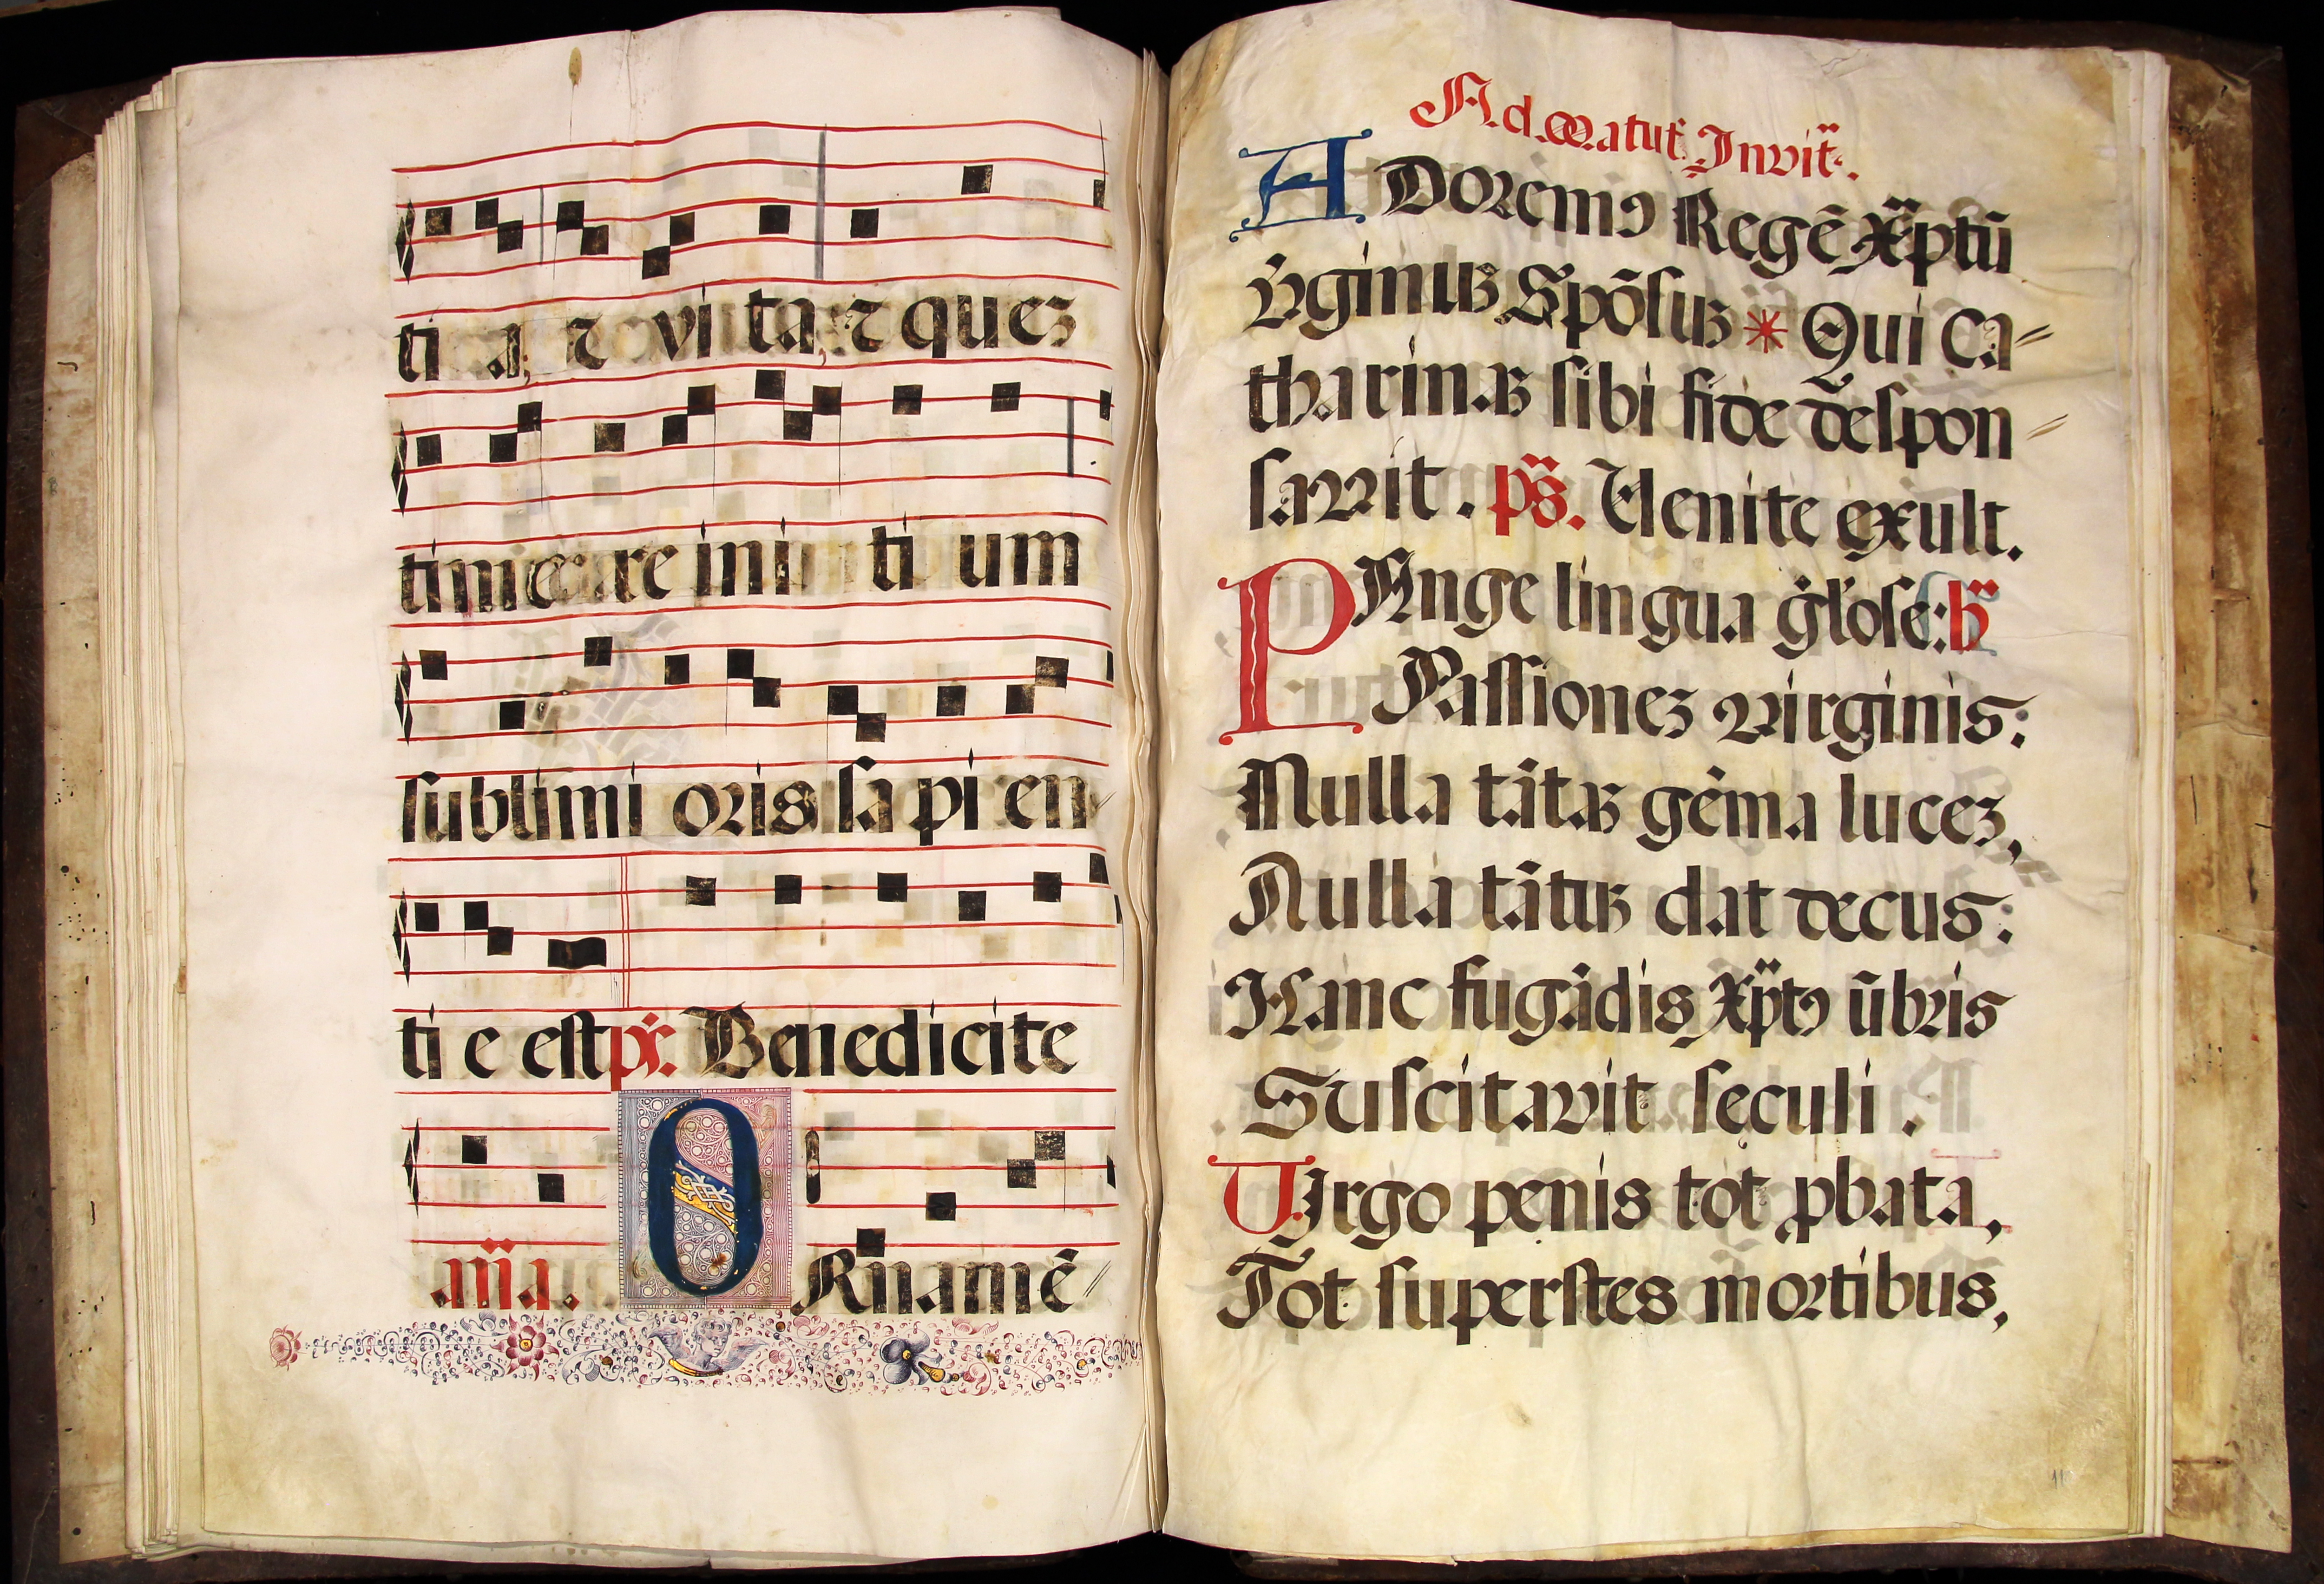 ti a, ⁊ vi ta, ⁊ quez
timere ini ti um
sublimi oris sa pi en
ti e est ps̈. Benedicite
aña. ORnamē/
Ad Matut̄. Invit̄.
ADoremꝰ Regē Xp̄tū
v̄rginuꝫ Spōsuꝫ * Qui Ca=
tharinaꝫ sibi fide despon=
savit. ps̄. Venite exult.
PAnge lingua gl̄ose: h̄
Passionez virginis:
Nulla tātaꝫ gēma lucez,
Nulla tātuꝫ dat decus:
Hanc fugādis Xp̄tꝰ ūbris
Suscitavit seculi.
Virgo penis tot ꝓbata,
Tot superstes mortibus,
11